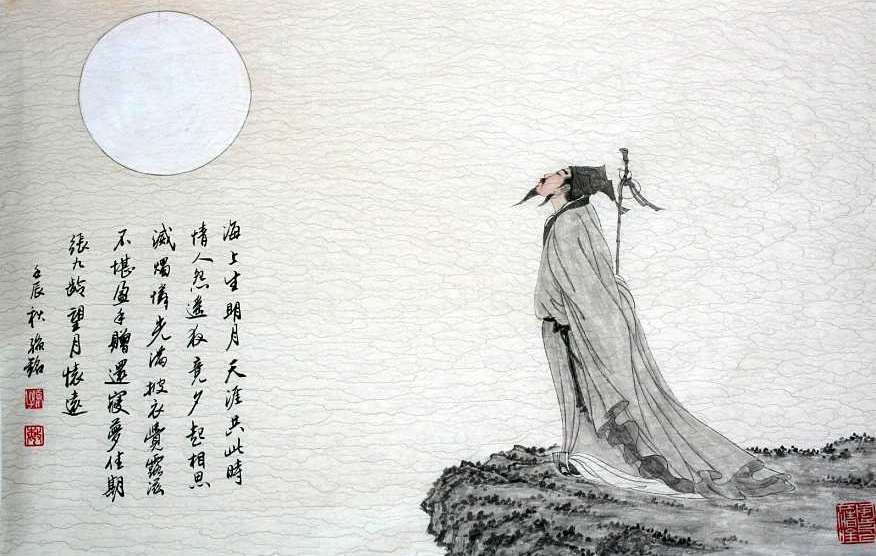 海上生明月天涯共此時
情人怨遙夜竟夕起相思
滅燭憐光滿披衣覺露滋
不堪盈手贈還寢夢佳期
張九齡望月懷遠
壬辰秋